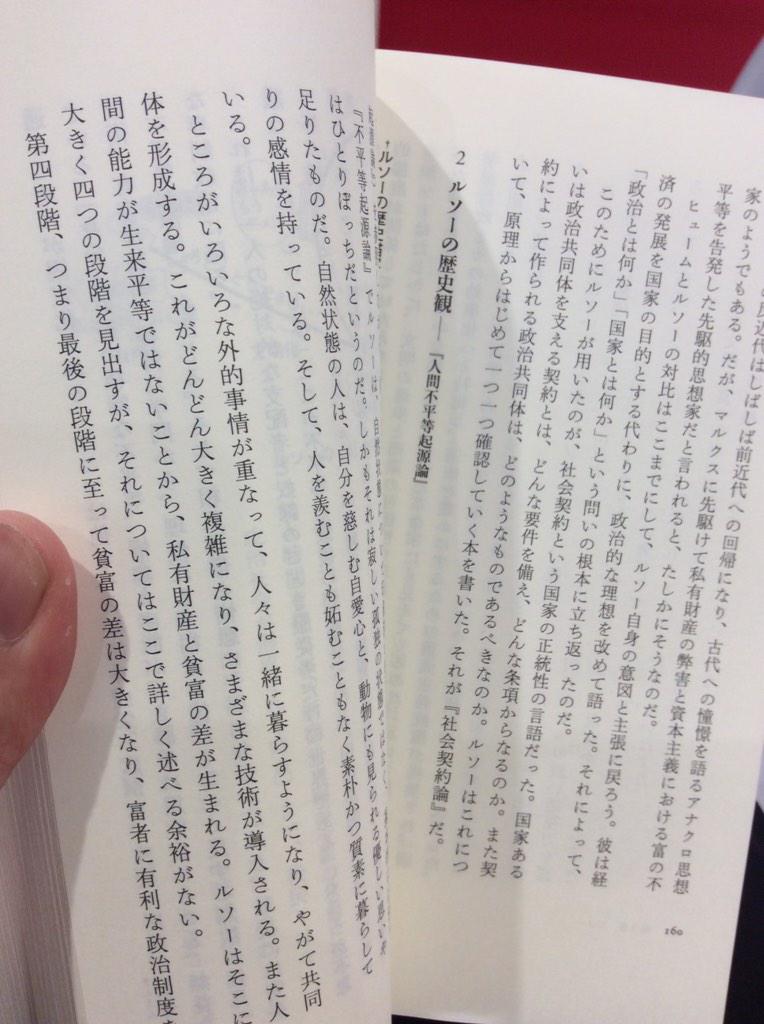 の反近代はしばしば前近代への回帰になり、古代への憧憬を語るアナクロ思想
家のようでもある。だが、マルクスに先駆けて私有財産の弊害と資本主義における富の不
平等を告発した先駆的思想家だと言われると、たしかにそうなのだ。
ヒュームとルソーの対比はここまでにして、ルソー自身の意図と主張に戻ろう。彼は経
済の発展を国家の目的とする代わりに、政治的な理想を改めて語った。それによって、
「政治とは何か」「国家とは何か」という問いの根本に立ち返ったのだ。
このためにルソーが用いたのが、社会契約という国家の正統性の言語だった。国家ある
いは政治共同体を支える契約とは、どんな要件を備え、どんな条項からなるのか。また契
約によって作られる政治共同体は、どのようなものであるべきなのか。ルソーはこれにつ
いて、原理からはじめて一つ一つ確認していく本を書いた。それが『社会契約論』だ。
2 ルソーの歴史観――『人間不平等起源論』
160
ルソーの歴史観
『不平等起源論』でルソーは、自然状態に
はひとりぼっちだというのだ。しかもそれは寂しい孤独の状態ではなく、
足りたものだ。自然状態の人は、自分を慈しむ自愛心と、動物にも見られる優しい思いや
りの感情を持っている。そして、人を羨むことも妬むこともなく素朴かつ質素に暮らして
いる。
ところがいろいろな外的事情が重なって、人々は一緒に暮らすようになり、やがて共同
体を形成する。これがどんどん大きく複雑になり、さまざまな技術が導入される。また人
間の能力が生来平等ではないことから、私有財産と貧富の差が生まれる。ルソーはそこに
大きく四つの段階を見出すが、それについてはここで詳しく述べる余裕がない。
第四段階、つまり最後の段階に至って貧富の差は大きくなり、富者に有利な政治制度